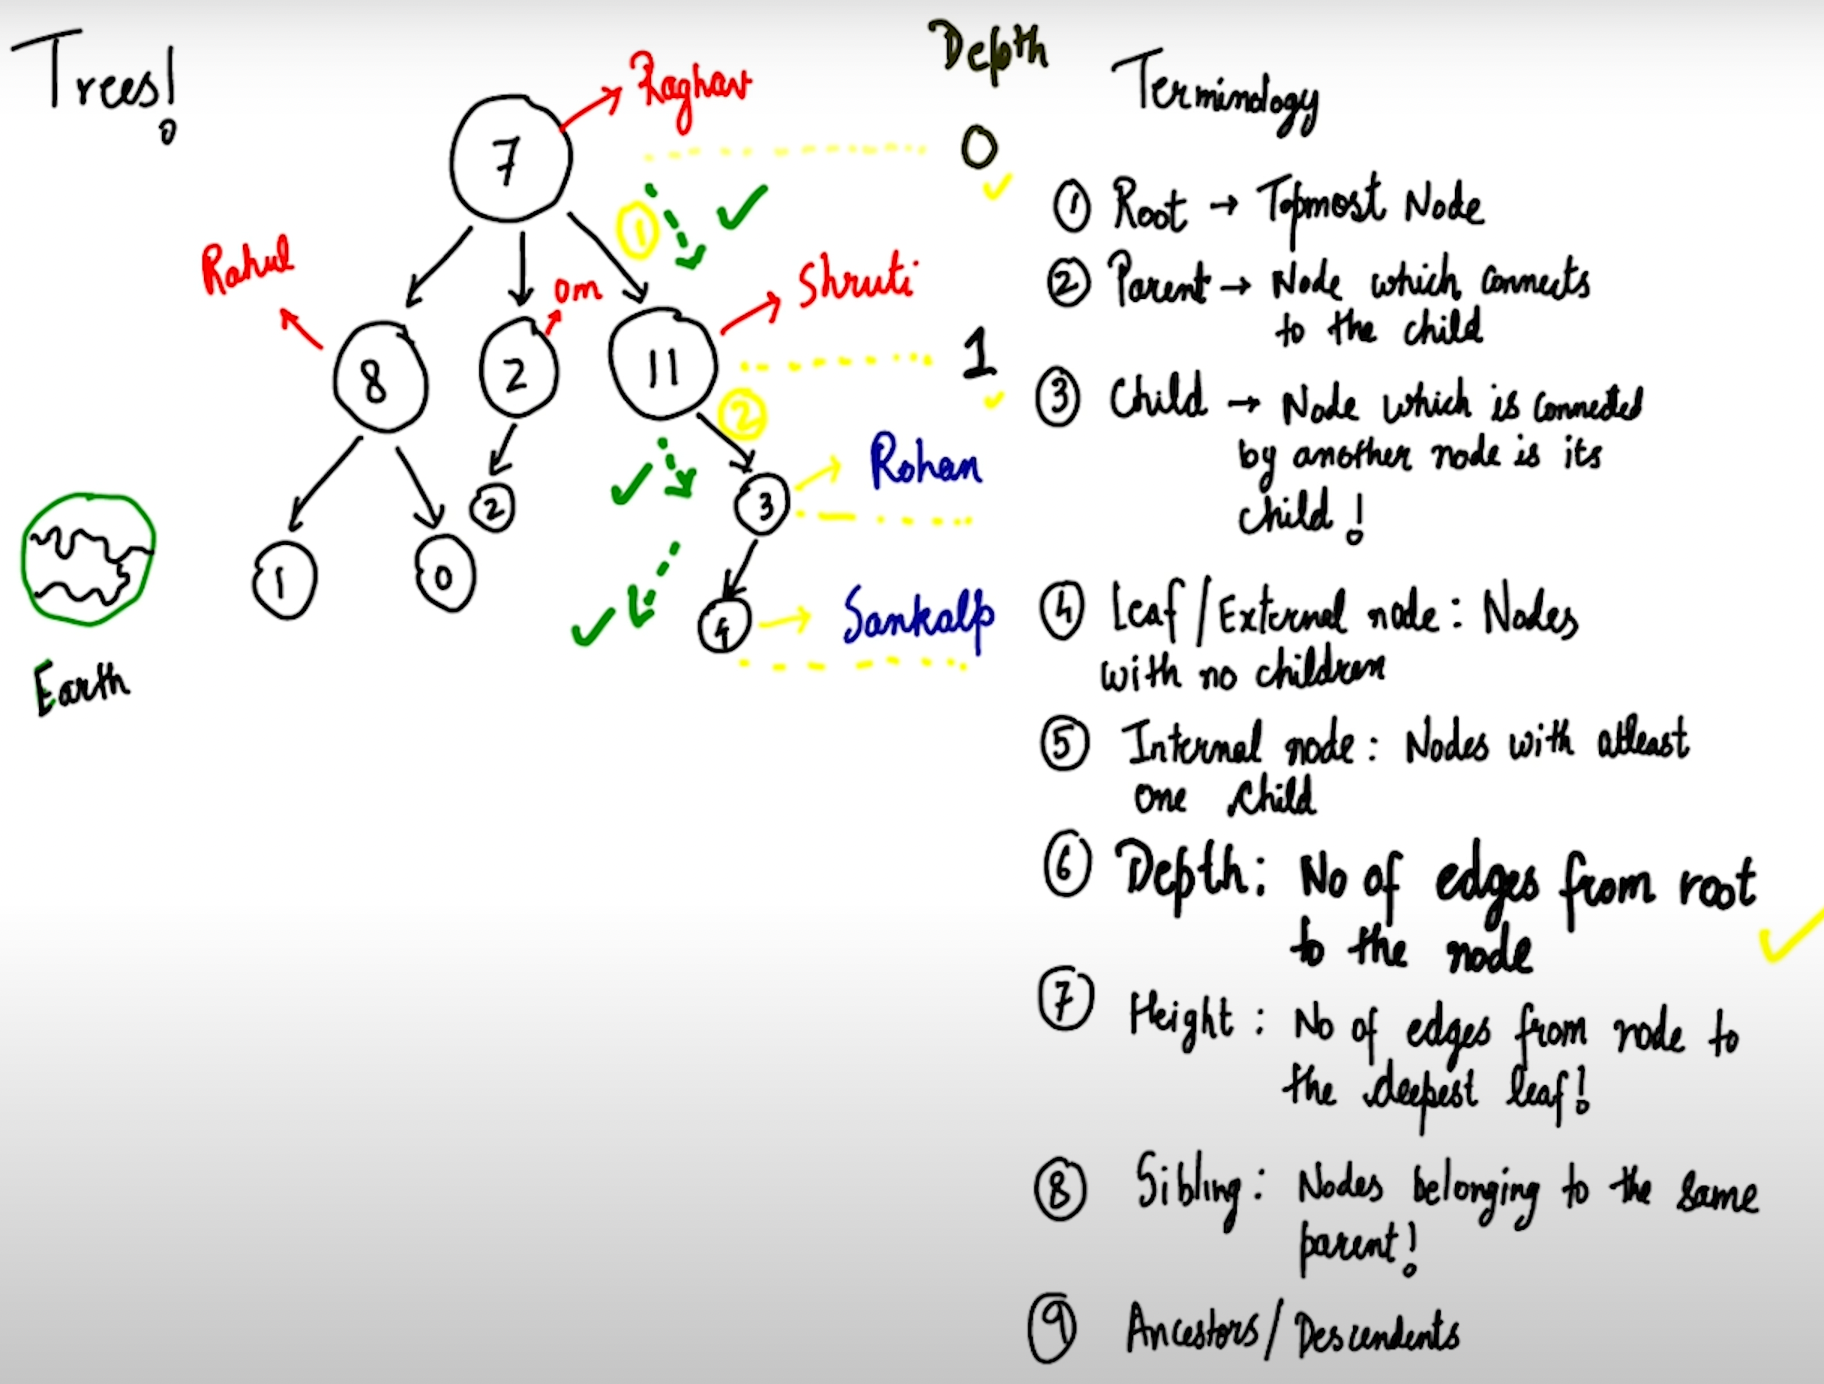 Trees!
Depth
7
Raghav
0
1
Rahul
om
Shruti
8
2
11
1
2
Rohan
2
3
1
0
Sankalp
Earth
Terminology
1 Root → Topmost Node
2 Parent → Node which connects
to the child
3 Child → Node which is connected
by another node is its
child!
4 Leaf / External node : Nodes
with no children
5 Internal node : Nodes with atleast
one child
6 Depth : No of edges from root
to the node
7 Height : No of edges from node to
the deepest leaf!
8 Sibling : Nodes belonging to the same
parent!
9 Ancestors / Descendents